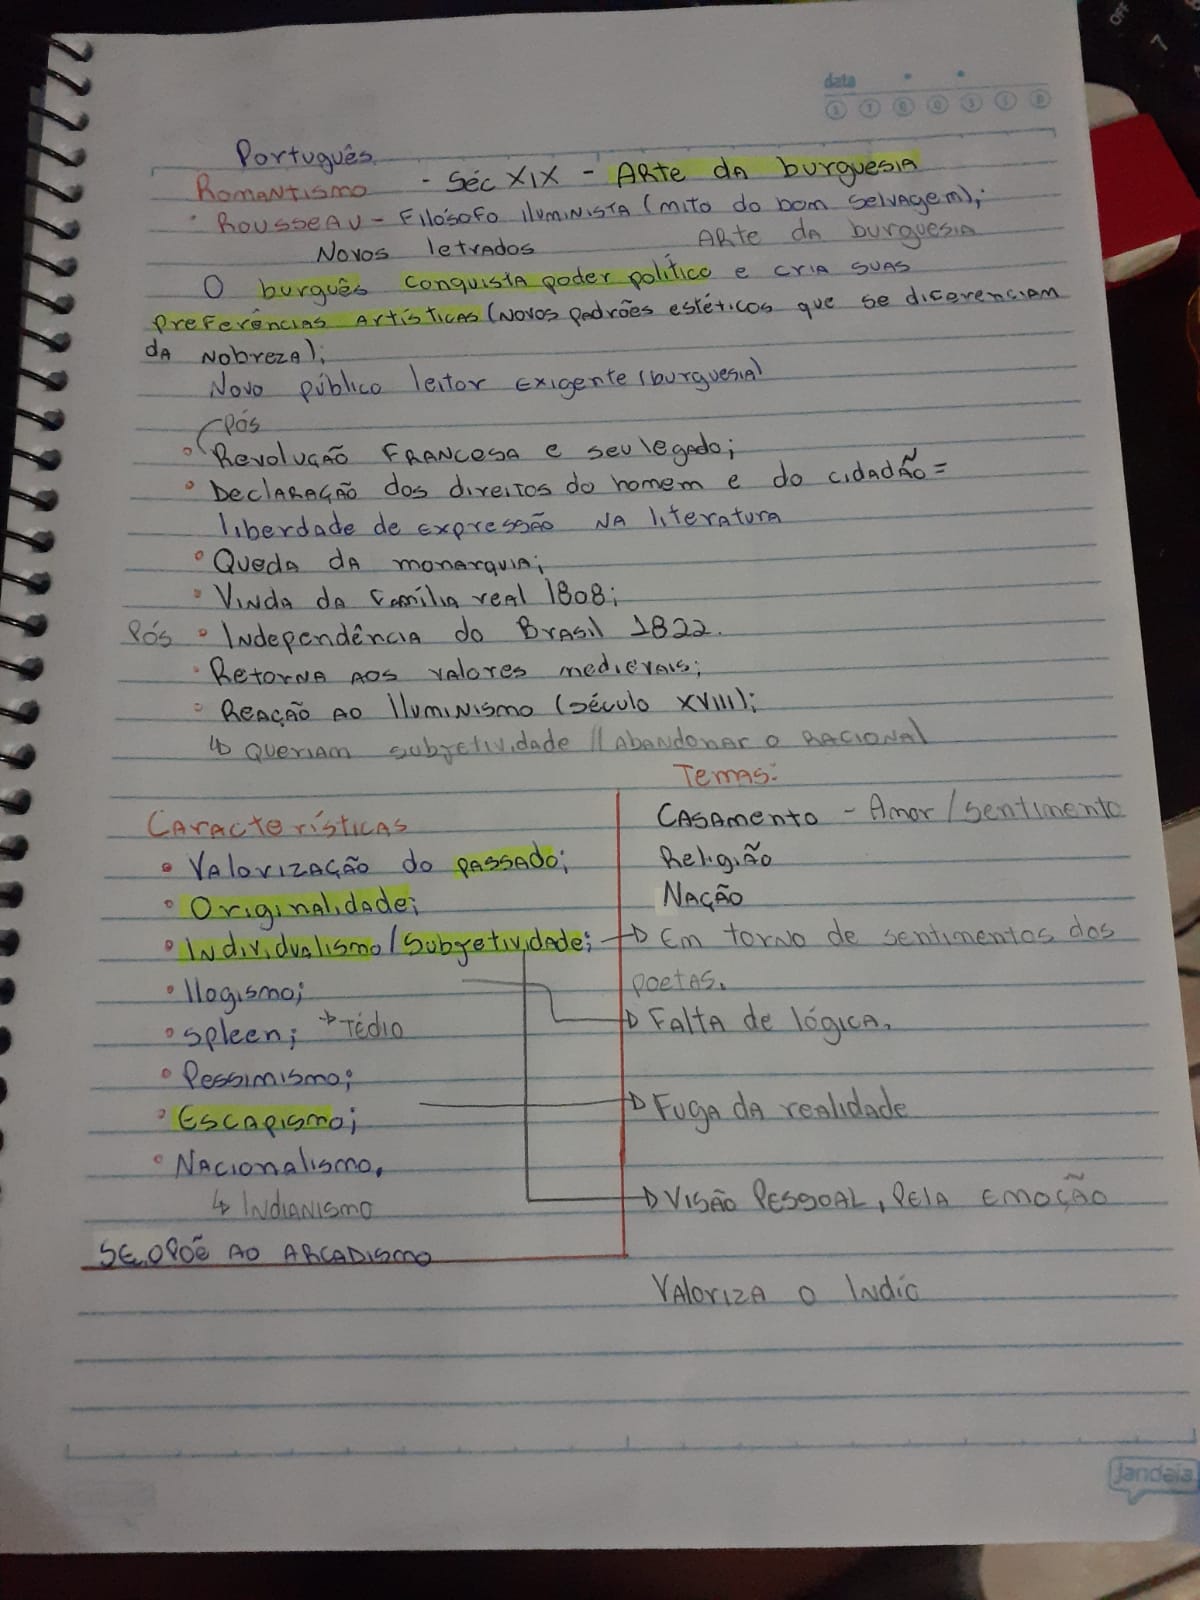 data
Português
Romantismo - Séc XIX - Arte da burguesia
Rousseau - Filósofo iluminista (mito do bom selvagem);
Novos letrados Arte da burguesia
O burguês conquista poder político e cria suas
preferências artísticas (novos padrões estéticos que se diferenciam
da nobreza);
Novo público leitor exigente (burguesia)
Pós
Revolução Francesa e seu legado;
Declaração dos direitos do homem e do cidadão =
liberdade de expressão na literatura
Queda da monarquia;
Vinda da família real 1808;
Pós Independência do Brasil 1822.
Retorna aos valores medievais;
Reação ao Iluminismo (século XVIII);
↳ Queriam subjetividade // abandonar o racional
Temas:
Casamento - Amor/sentimento
Religião
Nação
Características
Valorização do passado;
Originalidade;
Individualismo/subjetividade; → Em torno de sentimentos dos
poetas.
Ilogismo; → Falta de lógica.
Spleen; → Tédio
Pessimismo;
Escapismo; → Fuga da realidade
Nacionalismo.
↳ Indianismo → Visão pessoal, pela emoção
Se opõe ao Arcadismo
Valoriza o Índio
jandaia